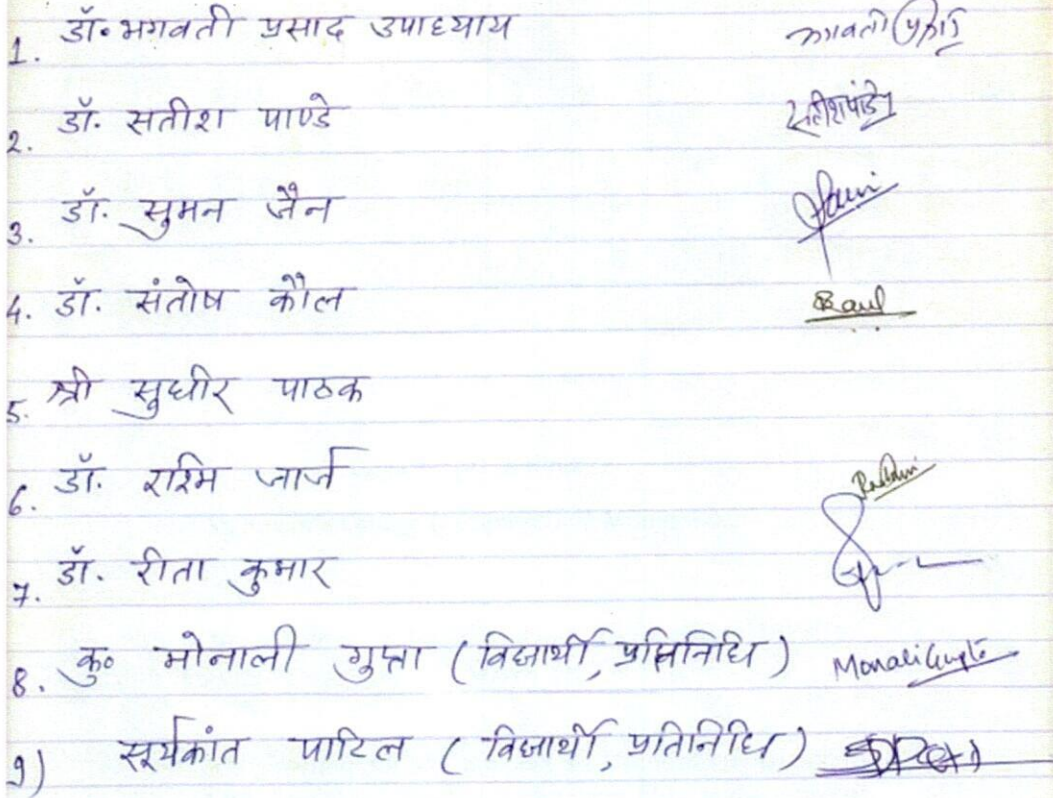 1. डॉ. भगवती प्रसाद उपाध्याय
2. डॉ. सतीश पाण्डे सतीश पांडे
3. डॉ. सुमन जैन
4. डॉ. संतोष कौल Kaul
5. श्री सुधीर पाठक
6. डॉ. रश्मि जार्ज Rashmi
7. डॉ. रीता कुमार
8. कु० मोनाली गुप्ता (विद्यार्थी, प्रतिनिधि) Monali Gupta
9) सूर्यकांत पाटिल (विद्यार्थी, प्रतिनिधि)